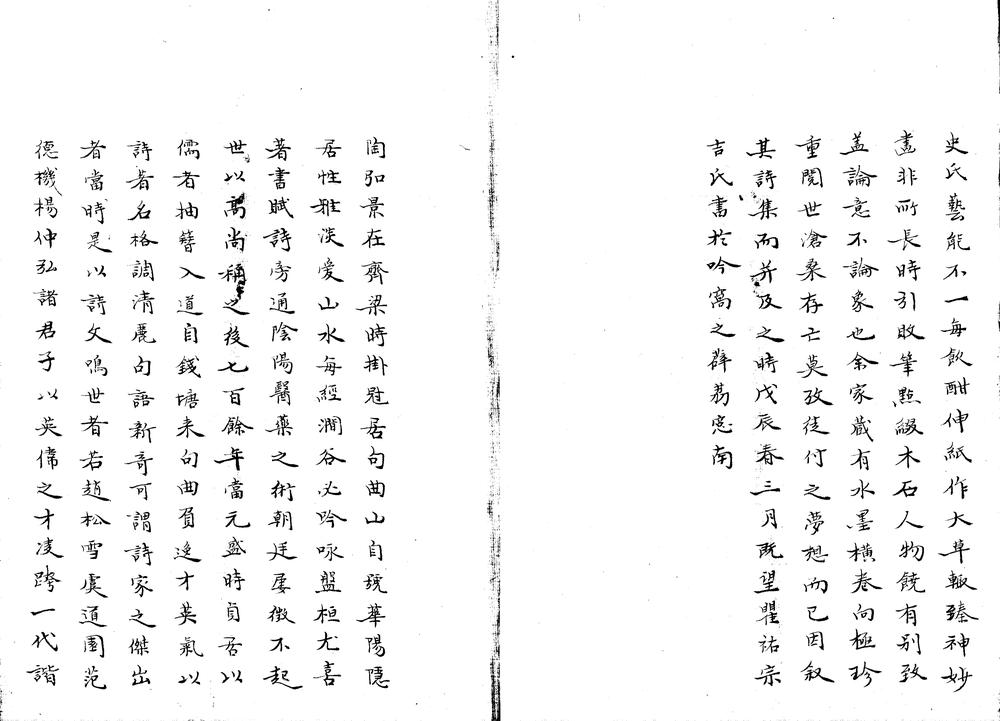 史氏藝能不一每飲酣伸紙作大草輙臻神妙
畫非所長時引敗筆點綴木石人物饒有别致
盖論意不論象也余家藏有水墨横卷向極珍
重閱世滄桑存亡莫攷徒付之夢想而已因叙
其詩集而并及之時戊辰春三月既望瞿祐宗
吉氏書於吟窩之薜荔窓南
陶弘景在齊梁時掛冠居句曲山自號華陽隱
居性雅淡愛山水每經澗谷必吟咏盤桓尤喜
著書賦詩旁通陰陽醫藥之術朝廷屡徴不起
世以髙尚稱之後七百餘年當元盛時貞居以
儒者抽簮入道自錢塘来句曲負逸才英氣以
詩者名格調清麗句語新奇可謂詩家之傑出
者當時是以詩文鳴世者若趙松雪虞道園范
德機楊仲弘諸君子以英偉之才凌跨一代諧